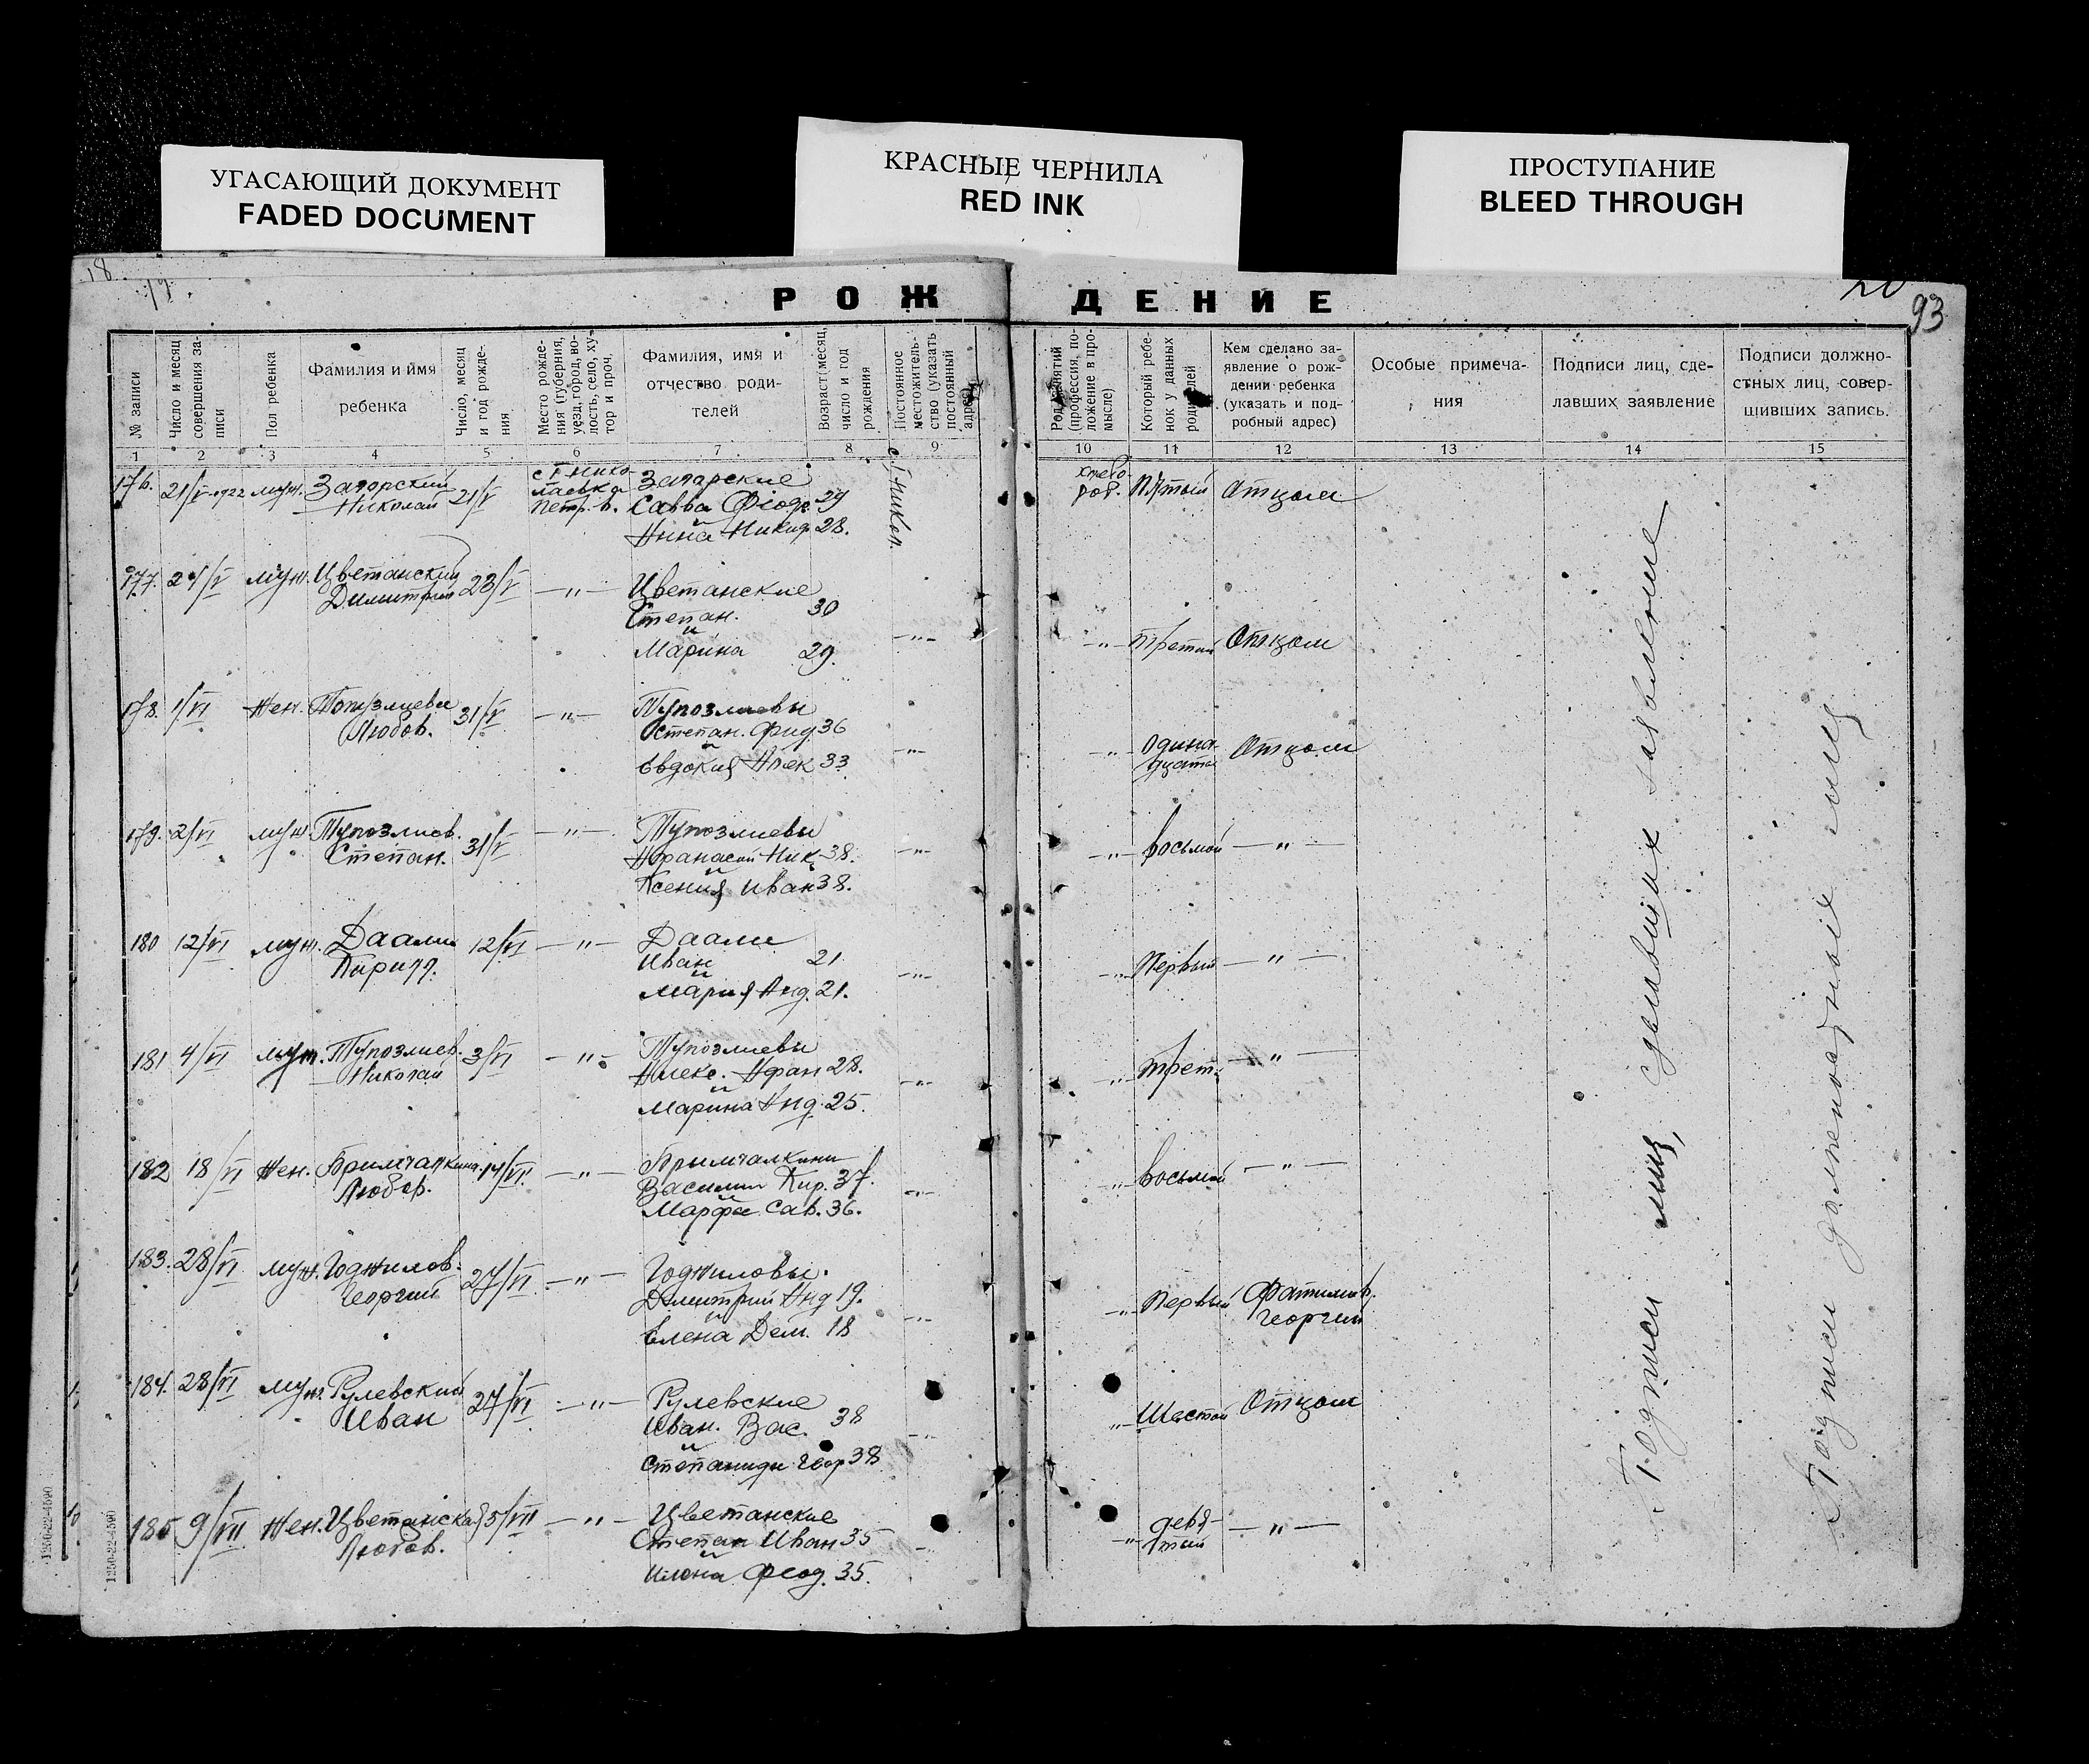 УГАСАЮЩИЙ ДОКУМЕНТ
FADED DOCUMENT
КРАСНЫЕ ЧЕРНИЛА
RED INK
ПРОСТУПАНИЕ
BLEED THROUGH
18
19.
20
93
РОЖДЕНИЕ
№ записи
Число и месяц
совершения за-
писи
Пол ребенка
Фамилия и имя
ребенка
Число, месяц
и год рожде-
ния
Место рожде-
ния (губерния,
уезд, город, во-
лость, село, ху-
тор и проч.
Фамилия, имя и
отчество роди-
телей
Возраст (месяц,
число и год
рождения
Постоянное
местожитель-
ство (указать
постоянный
адрес)
Род занятий
(профессия, по-
ложение в про-
мысле)
Который ребе-
нок у данных
родителей
Кем сделано за-
явление о рож-
дении ребенка
(указать и под-
робный адрес)
Особые примеча-
ния
Подписи лиц, сде-
лавших заявление
Подписи должно-
стных лиц, совер-
шивших запись.
1 2 3 4 5 6 7 8 9 10 11 12 13 14 15
176. 21/V 1922 муж. Загорский 21/V с. Нико- Загорские хлебо- Пятый Отцом
Николай лаевка Савва Фiод. 29 с. Никол. роб.
Петр. в. и
Анна Никид. 28.
177. 24/V муж. Цветанский 23/V —"— Цветанские
Димитрий Степан. 30
и —"— —"— третий Отцом
Марина 29.
178. 1/VI Жен. 31/V —"— Тупозлиевы
Любов. Степан. Фид. 36
и —"— —"— Одина- Отцом
Евдокия Алек 33 дцатый
179. 2/VI муж Тупозлиев. 31/V —"— Тупозлиевы
Степан. Афанасий Ник. 38. —"— —"— восьмой —"—
и
Ксения Иван 38.
180 12/VI муж. Даали 12/VI —"— Даали
Кирилл. Иван 21
и —"— —"— Первый —"—
Мария Анд. 21.
181 4/VI муж. Тупозлиев. 3/VI —"— Тупозлиевы
Николай Алекс. Афан 28. —"— —"— трет. —"—
и
Марина Анд. 25.
182 18/VI Жен. 14/VI. —"—
Любов. Василий Кир. 37. —"— —"— восьмой —"—
и
Марфа Сав. 36.
183. 28/VI муж. Годжилов. 27/VI —"— Годжиловы.
Георгий Димитрий Анд 19. —"— —"— Первый
и Георгий
Елена Дем. 18
184. 28/VI муж. Рулевский 27/VI —"— Рулевские
Иван Иван. Вас. 38 —"— —"— Шестой Отцом
и
Степанида Геор 38
185 9/VII Жен. Цветанская 5/VII —"— Цветанские
Любов. Степан Иван 35 —"— —"— девя- —"—
и тый
Илена Феод. 35.
Подписи лиц, сделавших заявление
Подписи должностных лиц
1250-22-4590
1250-22-4590